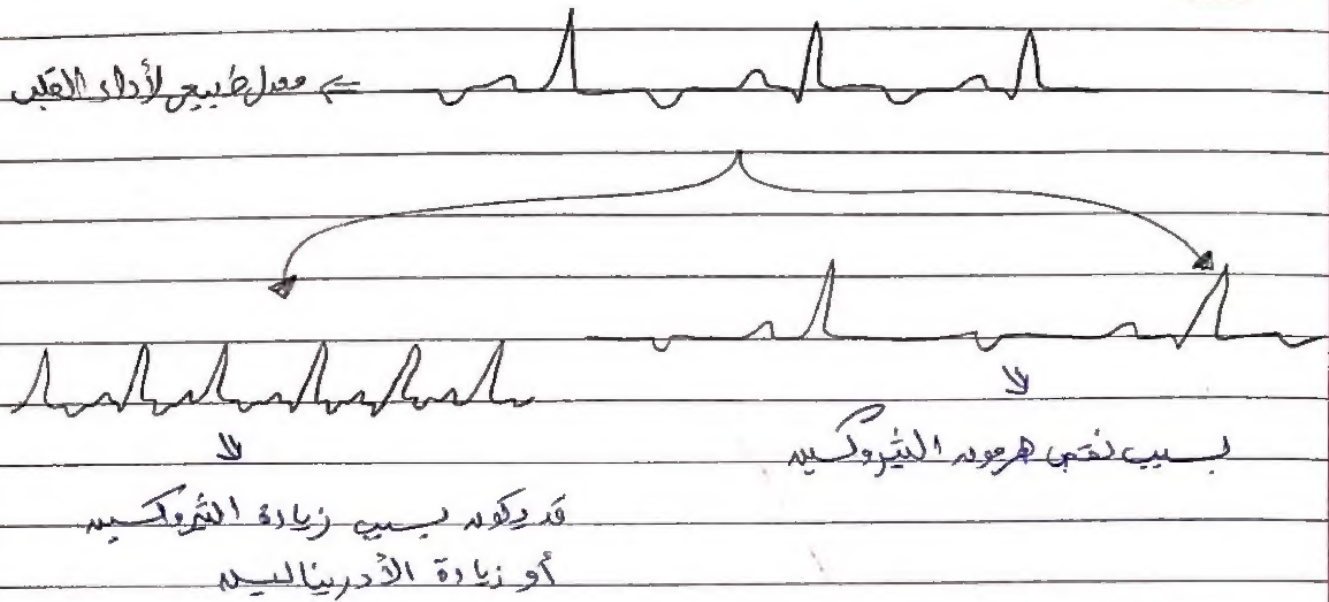 معدل طبيعي لأداء القلب
بسبب نقص هرمون الثيروكسين
قد يكون بسبب زيادة الثيروكسين
أو زيادة الأدرينالين